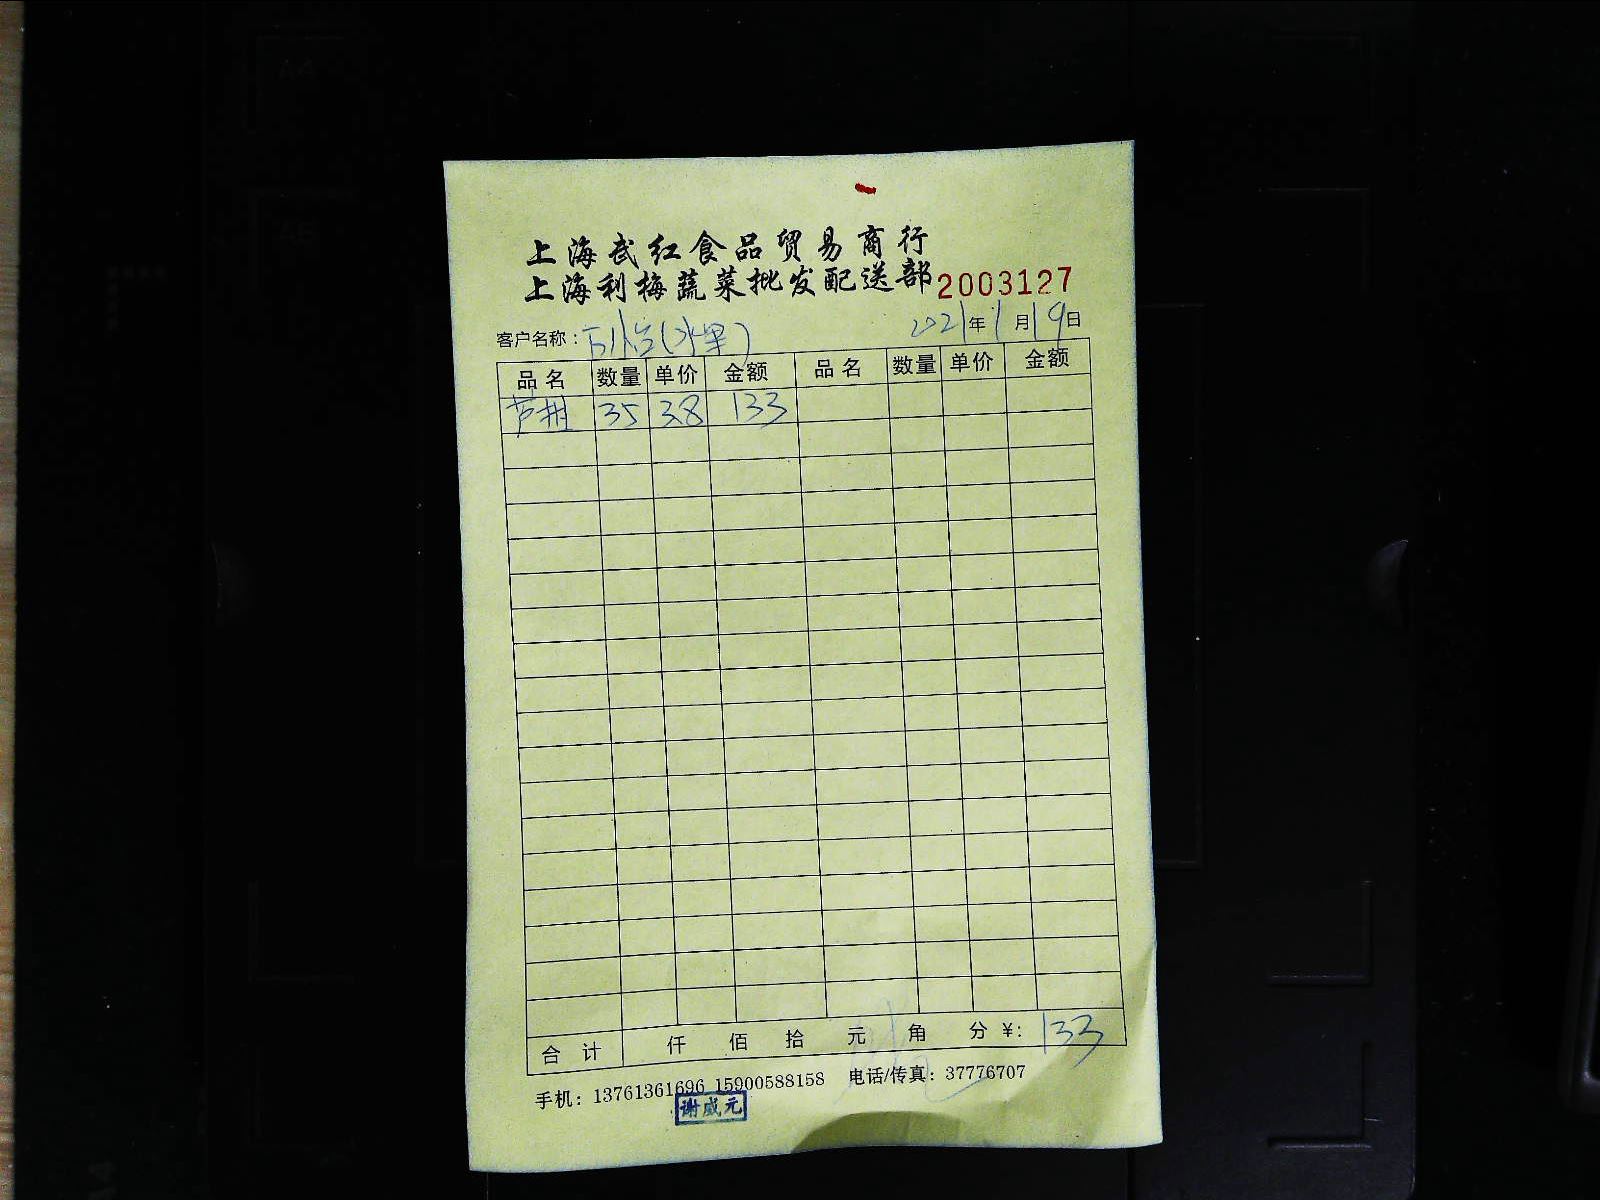 上海武红食品贸易商行
上海利梅蔬菜批发配送部 2003127
客户名称： (水果) 2021年1月19日
品名 数量 单价 金额 品名 数量 单价 金额
芦柑 35 3.8 133
合计 仟 佰 拾 元 角 分 ¥: 133
手机：13761361696 15900588158 电话/传真：37776707
谢威元